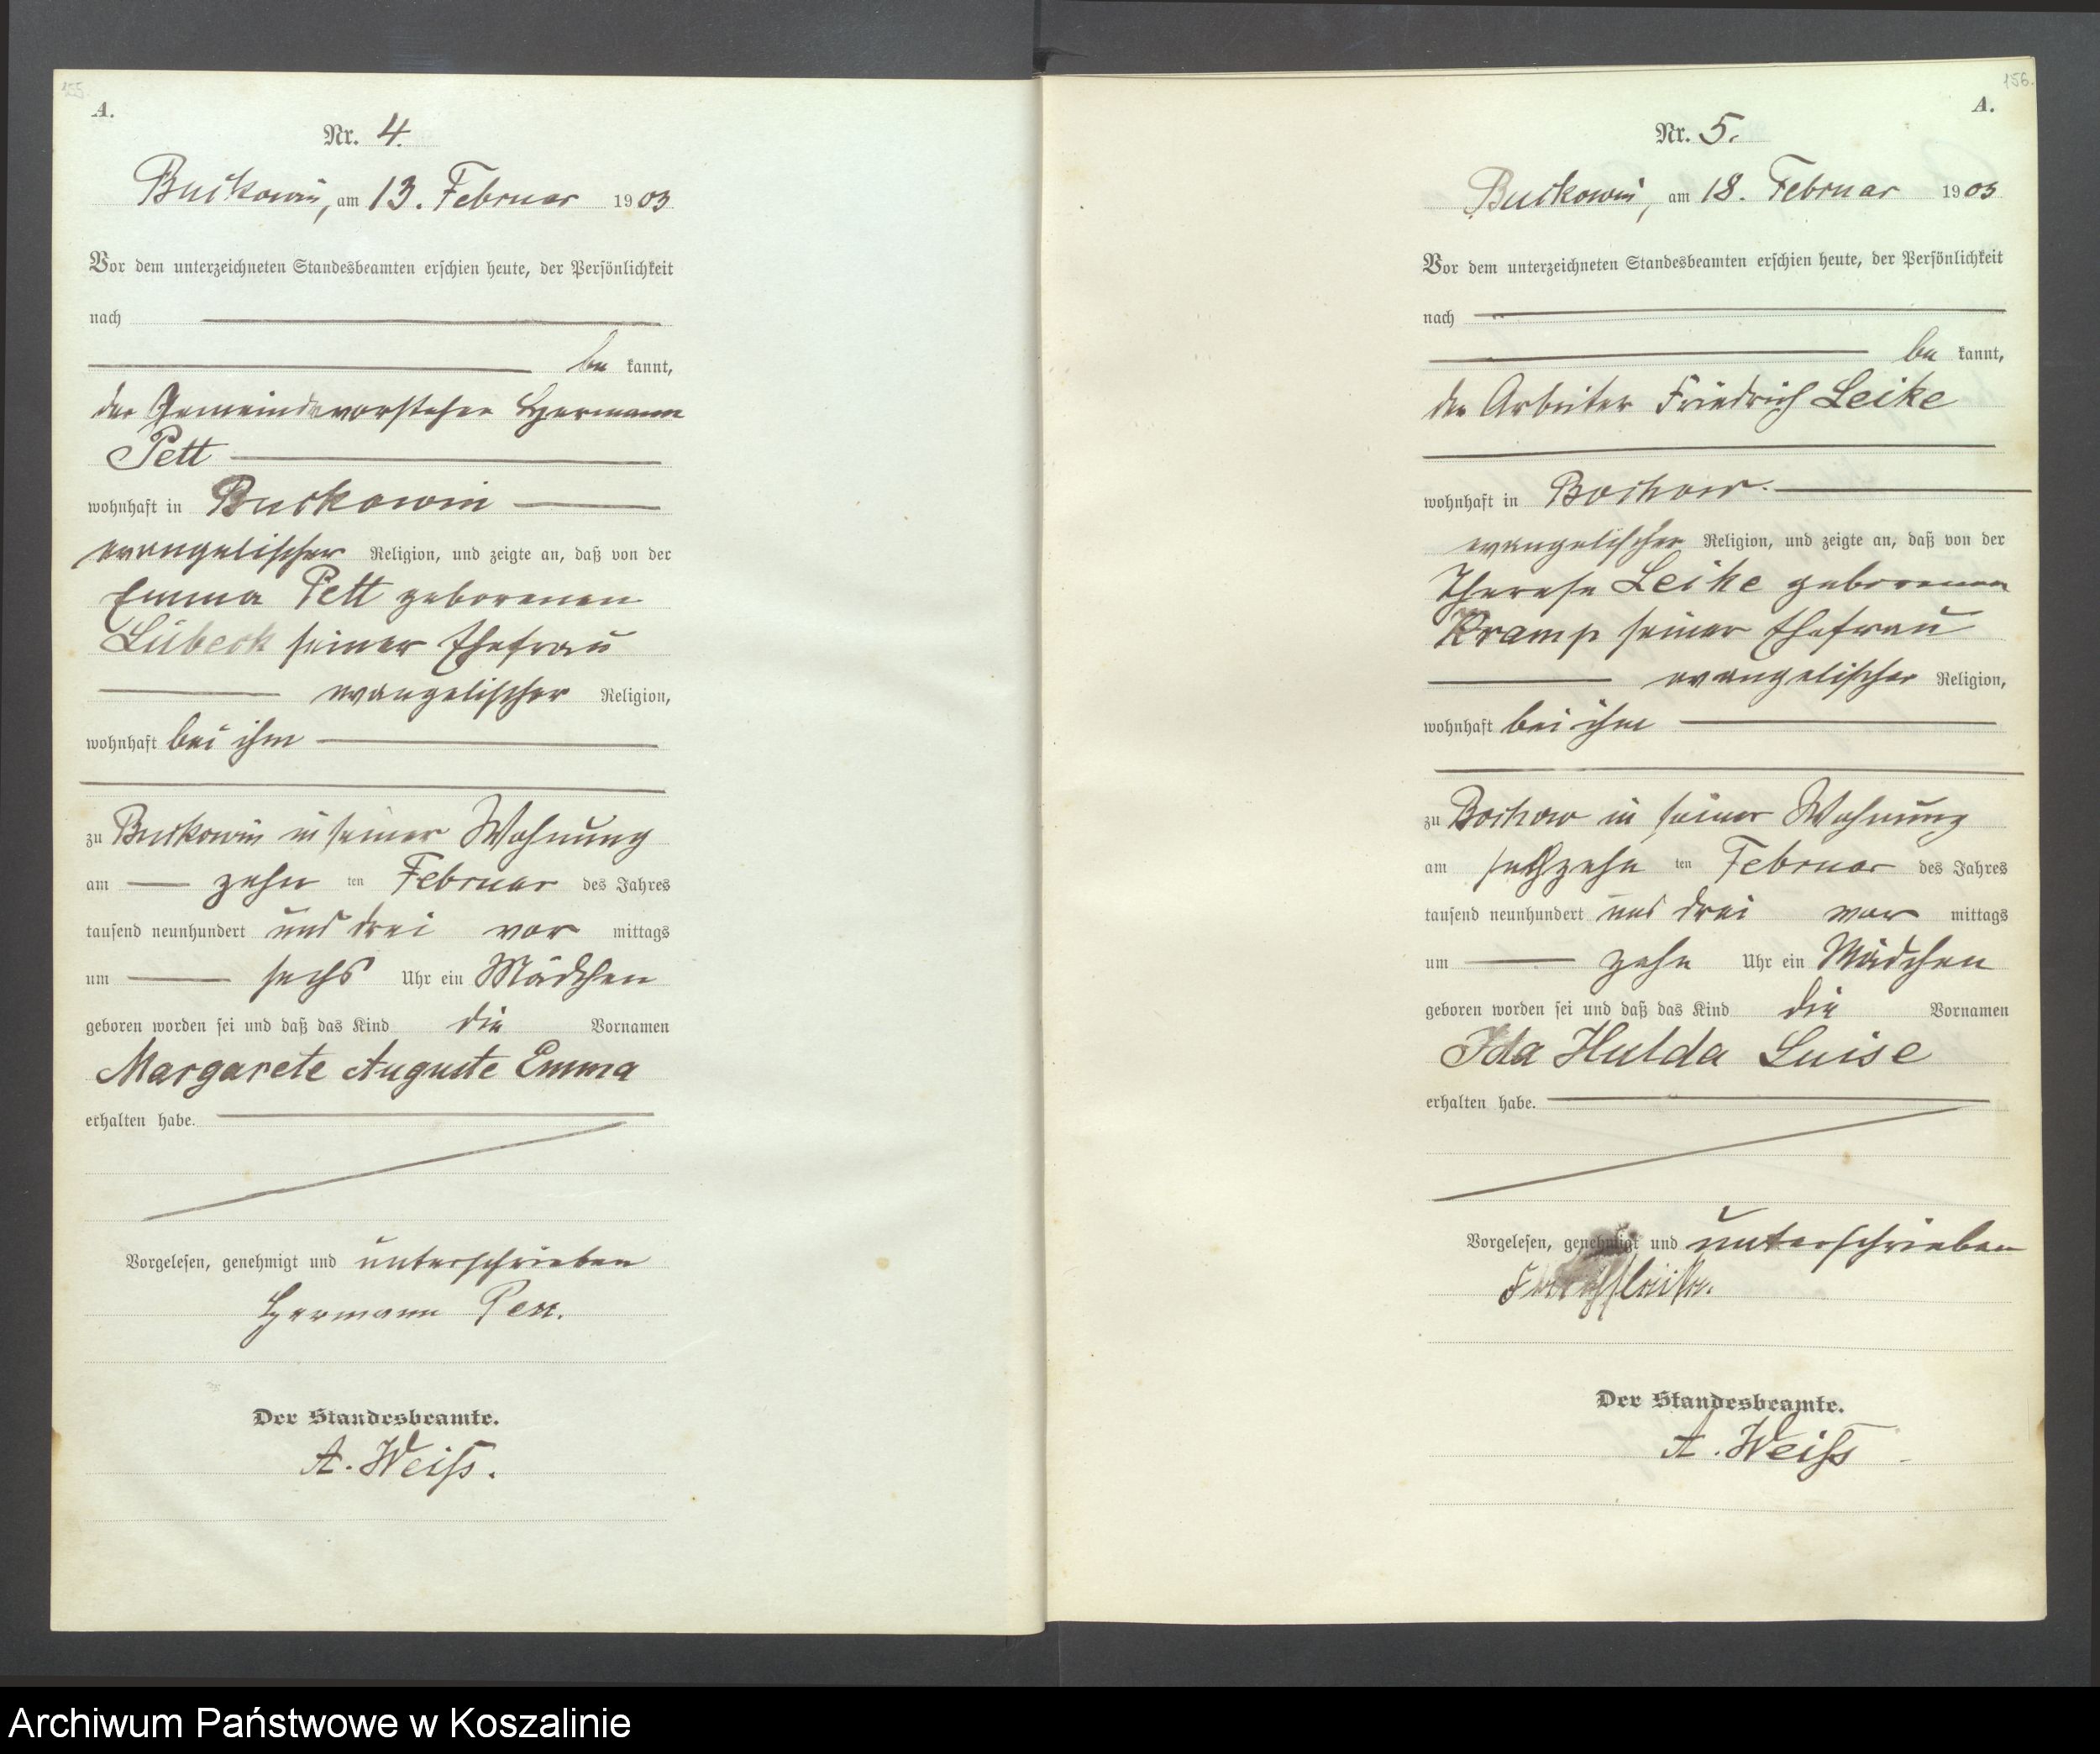 155.
A.
Nr. 4.
Buckowin, am 13. Februar 1903
Vor dem unterzeichneten Standesbeamten erschien heute, der Persönlichkeit
nach
be kannt,
der Gemeindevorsteher Hermann
Pett
wohnhaft in Buckowin
evangelischer Religion, und zeigte an, daß von der
Emma Pett geborenen
Lübeck seiner Ehefrau
evangelischer Religion,
wohnhaft bei ihm
zu Buckowin in seiner Wohnung
am zehn ten Februar des Jahres
tausend neunhundert und drei vor mittags
um sechs Uhr ein Mädchen
geboren worden sei und daß das Kind die Vornamen
Margarete Auguste Emma
erhalten habe.
Vorgelesen, genehmigt und unterschrieben
Hermann Pett.
Der Standesbeamte.
A. Weiß.
156.
A.
Nr. 5.
Buckowin, am 18. Februar 1903
Vor dem unterzeichneten Standesbeamten erschien heute, der Persönlichkeit
nach
be kannt,
der Arbeiter Friedrich Leike
wohnhaft in Bochow.
evangelischer Religion, und zeigte an, daß von der
Therese Leike geborenen
Kramp seiner Ehefrau
evangelischer Religion,
wohnhaft bei ihm
zu Bochow in seiner Wohnung
am sechzehn ten Februar des Jahres
tausend neunhundert und drei vor mittags
um zehn Uhr ein Mädchen
geboren worden sei und daß das Kind die Vornamen
Ida Hulda Luise
erhalten habe.
Vorgelesen, genehmigt und unterschrieben
Leike.
Der Standesbeamte.
A. Weiß
Archiwum Państwowe w Koszalinie